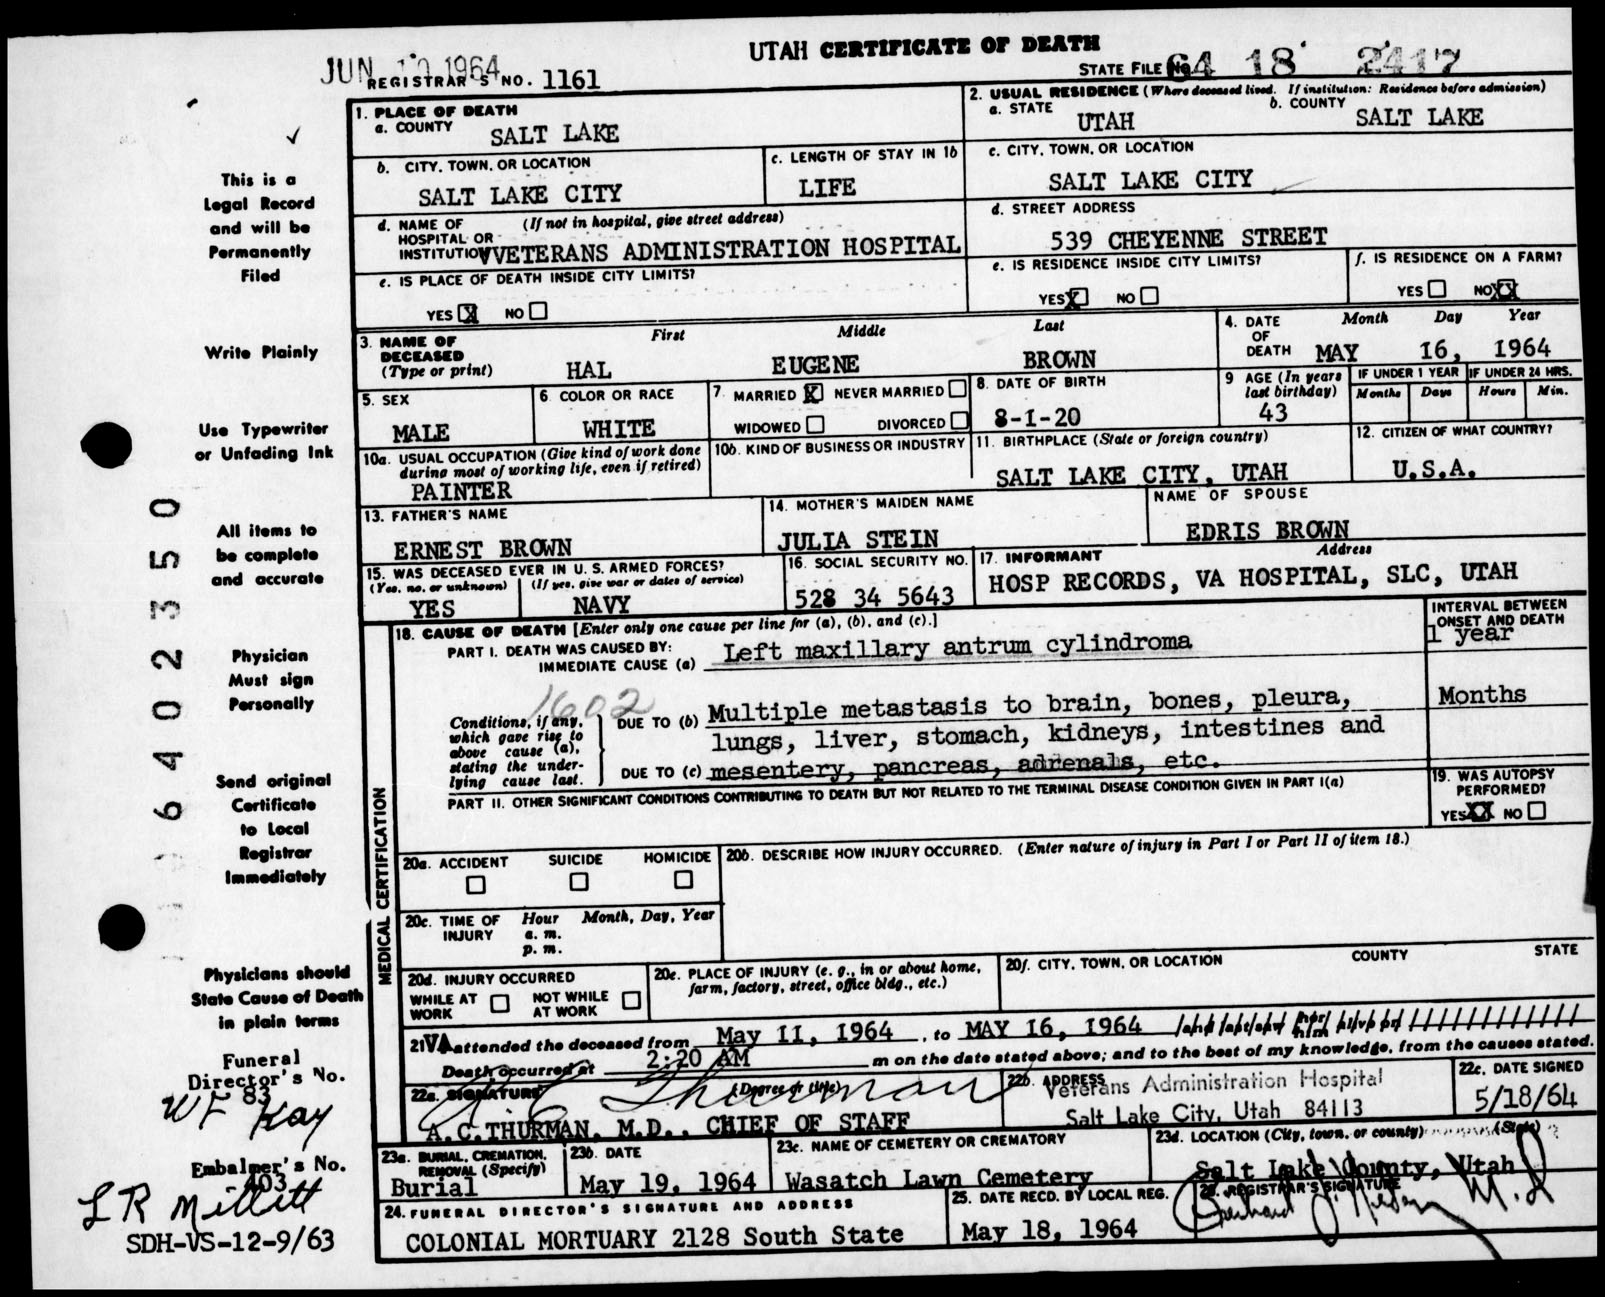 UTAH CERTIFICATE OF DEATH
JUN 10 1964
REGISTRAR'S NO. 1161
STATE FILE No. 64 18 2417
1. PLACE OF DEATH
a. COUNTY SALT LAKE
2. USUAL RESIDENCE (Where deceased lived. If institution: Residence before admission)
a. STATE UTAH b. COUNTY SALT LAKE
b. CITY, TOWN, OR LOCATION SALT LAKE CITY
c. LENGTH OF STAY IN 1b LIFE
c. CITY, TOWN, OR LOCATION SALT LAKE CITY
d. NAME OF HOSPITAL OR INSTITUTION (If not in hospital, give street address) VETERANS ADMINISTRATION HOSPITAL
d. STREET ADDRESS 539 CHEYENNE STREET
e. IS PLACE OF DEATH INSIDE CITY LIMITS?
YES X NO
e. IS RESIDENCE INSIDE CITY LIMITS?
YES X NO
f. IS RESIDENCE ON A FARM?
YES NO XX
3. NAME OF DECEASED (Type or print)
First Middle Last
HAL EUGENE BROWN
4. DATE OF DEATH Month Day Year
MAY 16, 1964
5. SEX MALE
6. COLOR OR RACE WHITE
7. MARRIED X NEVER MARRIED
WIDOWED DIVORCED
8. DATE OF BIRTH 8-1-20
9 AGE (In years last birthday) 43
IF UNDER 1 YEAR Months Days
IF UNDER 24 HRS. Hours Min.
10a. USUAL OCCUPATION (Give kind of work done during most of working life, even if retired)
PAINTER
10b. KIND OF BUSINESS OR INDUSTRY
11. BIRTHPLACE (State or foreign country)
SALT LAKE CITY, UTAH
12. CITIZEN OF WHAT COUNTRY?
U.S.A.
13. FATHER'S NAME ERNEST BROWN
14. MOTHER'S MAIDEN NAME JULIA STEIN
NAME OF SPOUSE EDRIS BROWN
15. WAS DECEASED EVER IN U.S. ARMED FORCES?
(Yes, no, or unknown) (If yes, give war or dates of service)
YES NAVY
16. SOCIAL SECURITY NO. 528 34 5643
17. INFORMANT Address
HOSP RECORDS, VA HOSPITAL, SLC, UTAH
MEDICAL CERTIFICATION
18. CAUSE OF DEATH [Enter only one cause per line for (a), (b), and (c).]
INTERVAL BETWEEN ONSET AND DEATH
PART I. DEATH WAS CAUSED BY:
IMMEDIATE CAUSE (a) Left maxillary antrum cylindroma 1 year
1602
Conditions, if any, which gave rise to above cause (a), stating the underlying cause last.
DUE TO (b) Multiple metastasis to brain, bones, pleura, Months
lungs, liver, stomach, kidneys, intestines and
DUE TO (c) mesentery, pancreas, adrenals, etc.
PART II. OTHER SIGNIFICANT CONDITIONS CONTRIBUTING TO DEATH BUT NOT RELATED TO THE TERMINAL DISEASE CONDITION GIVEN IN PART I(a)
19. WAS AUTOPSY PERFORMED?
YES XX NO
20a. ACCIDENT SUICIDE HOMICIDE
20b. DESCRIBE HOW INJURY OCCURRED. (Enter nature of injury in Part I or Part II of item 18.)
20c. TIME OF INJURY Hour Month, Day, Year
a. m.
p. m.
20d. INJURY OCCURRED
WHILE AT WORK NOT WHILE AT WORK
20e. PLACE OF INJURY (e. g., in or about home, farm, factory, street, office bldg., etc.)
20f. CITY, TOWN, OR LOCATION COUNTY STATE
21 VA attended the deceased from May 11, 1964, to MAY 16, 1964 and last saw her him alive on
Death occurred at 2:20 AM m on the date stated above; and to the best of my knowledge, from the causes stated.
22a. SIGNATURE (Degree or title)
A C Thurman
A. C. THURMAN, M.D., CHIEF OF STAFF
22b. ADDRESS
Veterans Administration Hospital
Salt Lake City, Utah 84113
22c. DATE SIGNED
5/18/64
23a. BURIAL, CREMATION, REMOVAL (Specify) Burial
23b. DATE May 19, 1964
23c. NAME OF CEMETERY OR CREMATORY Wasatch Lawn Cemetery
23d. LOCATION (City, town, or county) (State)
Salt Lake County, Utah
24. FUNERAL DIRECTOR'S SIGNATURE AND ADDRESS
COLONIAL MORTUARY 2128 South State
25. DATE RECD. BY LOCAL REG. May 18, 1964
26. REGISTRAR'S SIGNATURE
M.D
This is a
Legal Record
and will be
Permanently
Filed
Write Plainly
Use Typewriter
or Unfading Ink
All items to
be complete
and accurate
Physician
Must sign
Personally
Send original
Certificate
to Local
Registrar
Immediately
Physicians should
State Cause of Death
in plain terms
Funeral
Director's No.
83
W L Kay
Embalmer's No.
403
L R Millett
SDH-VS-12-9/63
6402350